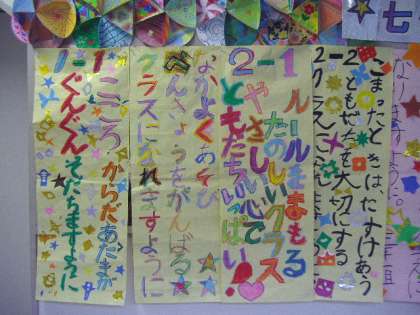 七
なりますように
こまったときは、たすけあう
2-2ともだちを大切にする
2-1 ルールをまもる
たのしいクラス
やさしい心で
ともだちいっぱい!
なかよくあそび
べんきょうをがんばる
クラスになれますように
1-1 こころ
からだ あたまが
ぐんぐん
そだちますように